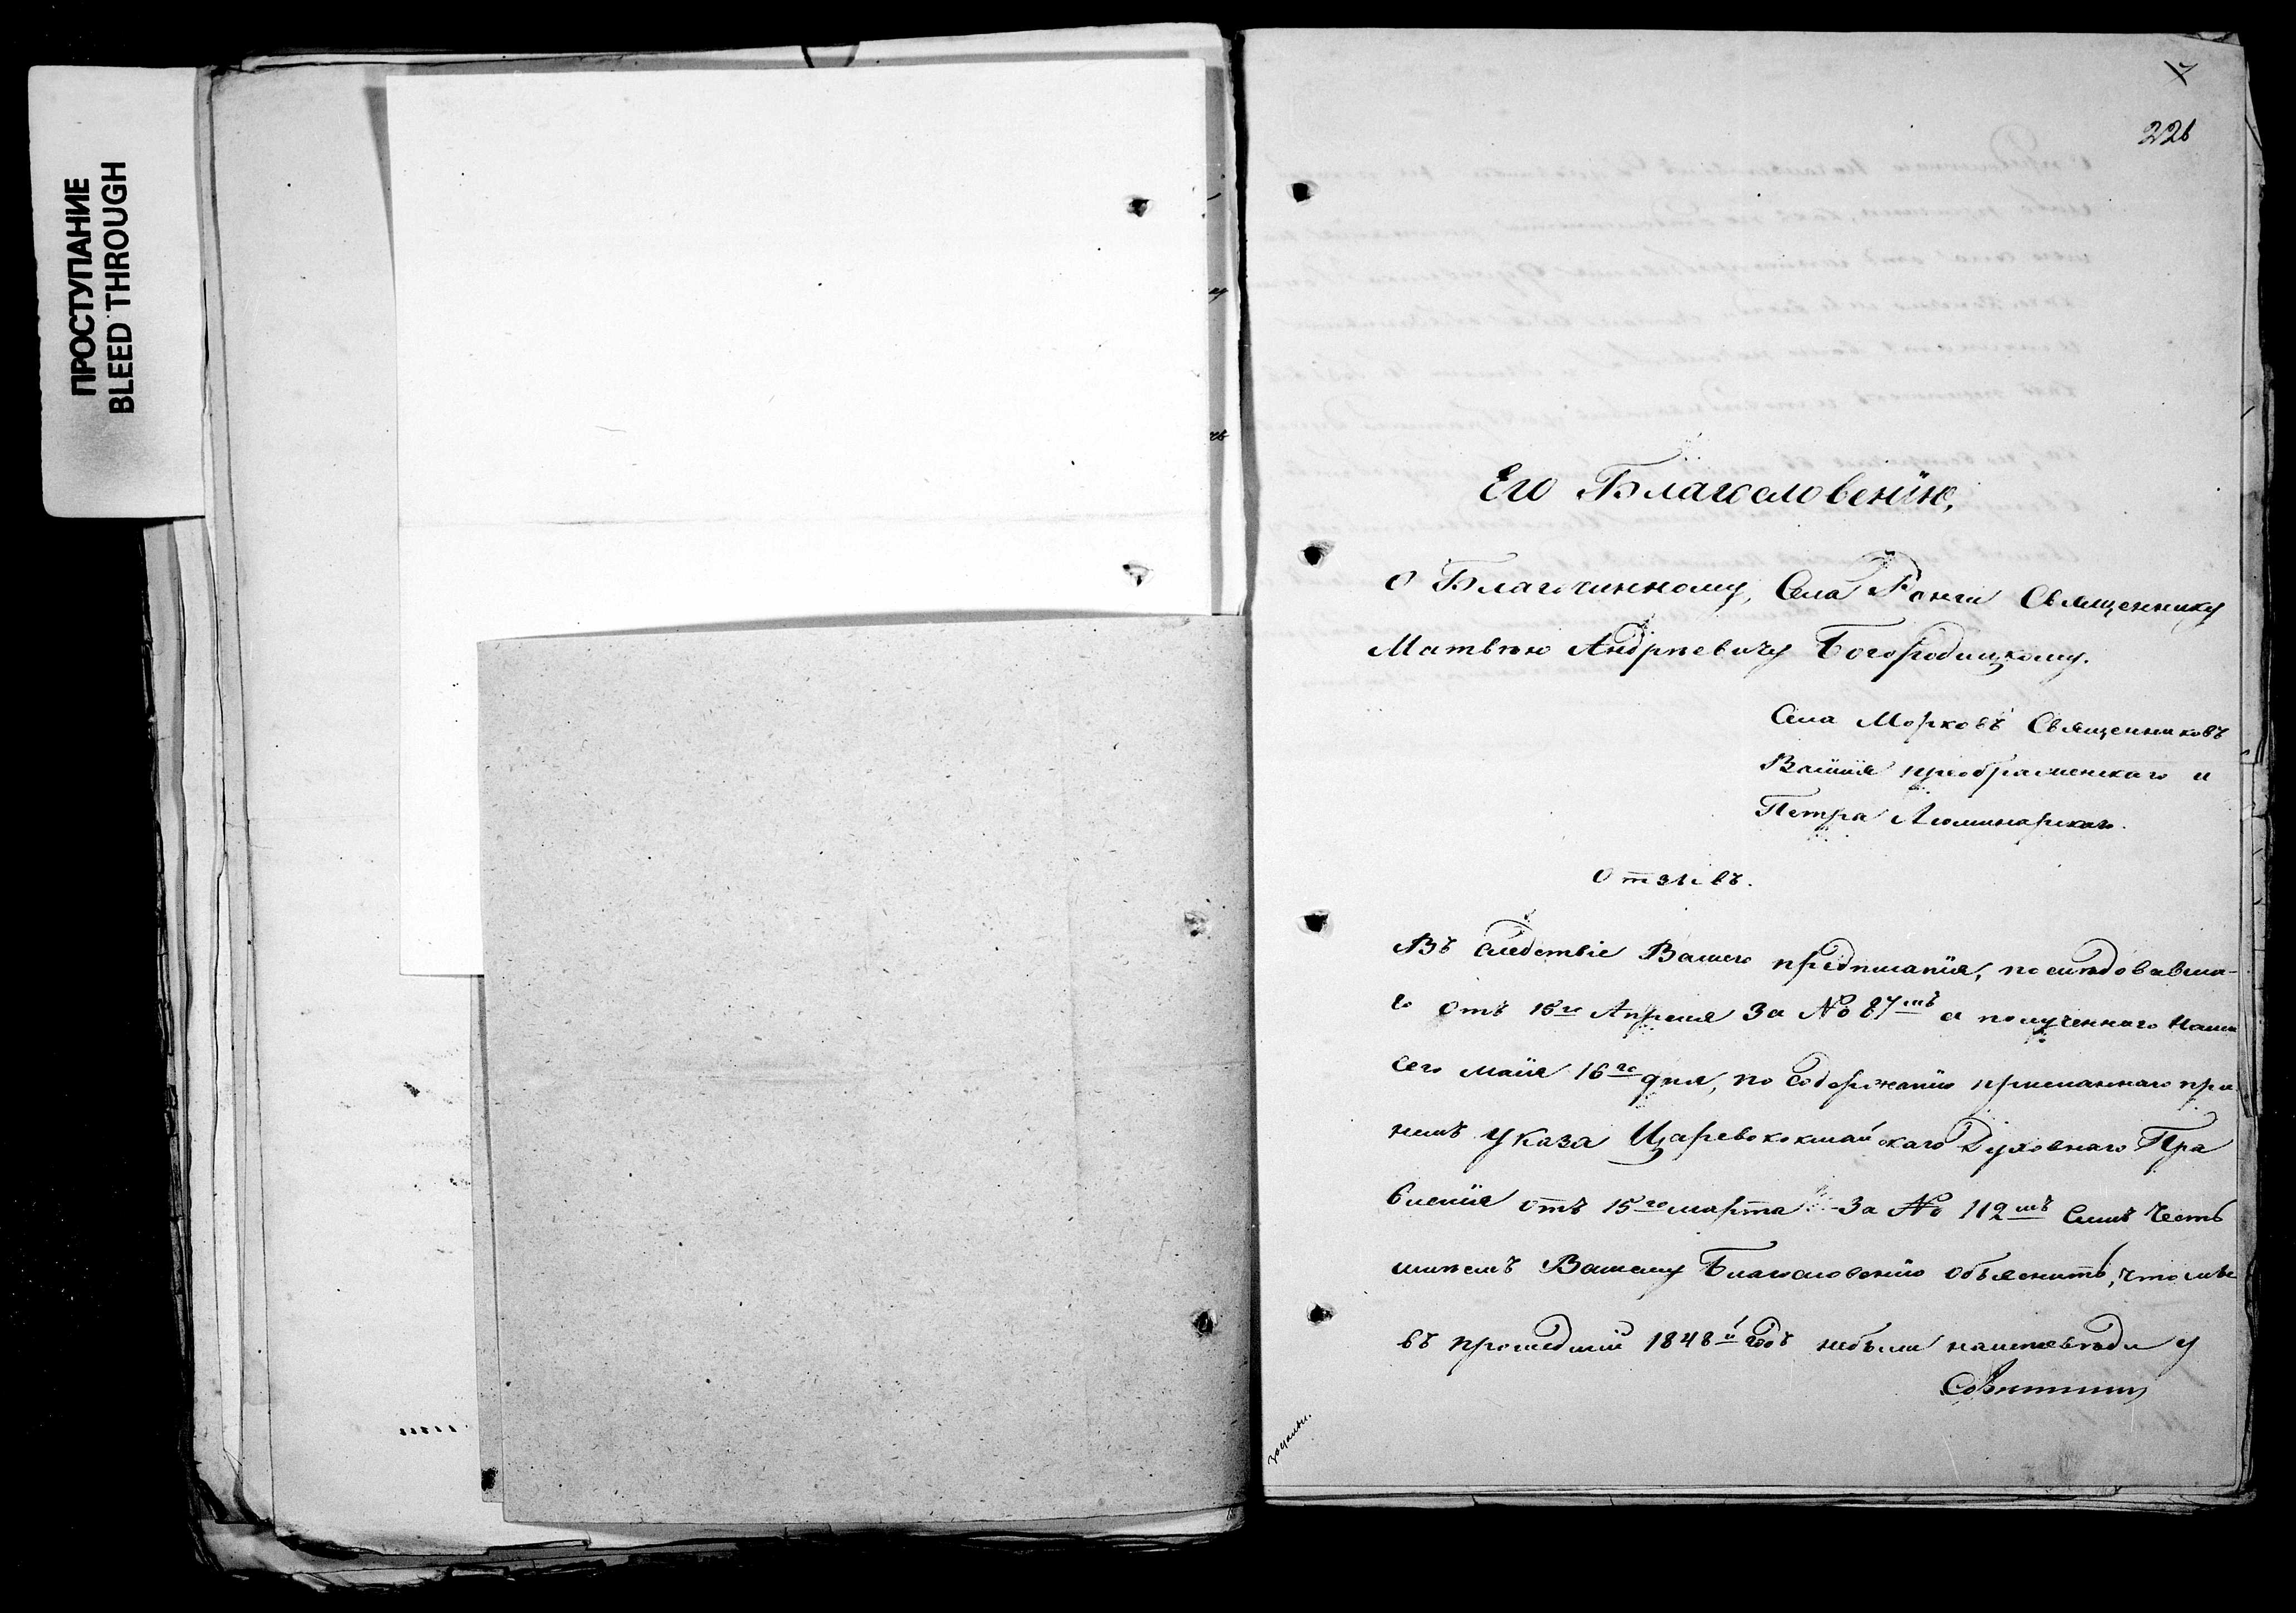 ПРОСТУПАНИЕ
BLEED THROUGH
7
226
Его Благословенїю,
О Благочинному, Села Ронги Священнику
Матвѣю Андрѣевичу Богородицкому.
Села Морковъ Священниковъ
преображенскаго и
Петра Люминарскаго.
Отзывъ.
Въ следствіе Вашего предписанїя, послѣдовавша-
го отъ 15го Апреля За № 87мъ и полученнаго Нами
Сего маїя 16го дня, по Содержанїю присланнаго при
немъ Указа Царевококшайскаго Духовнаго Пра
вленїя отъ 15го марта За № 112мъ Симъ Честь
имѣемъ Вашему Благословенїю Объяснить, что мы
въ прошедшій 1848й годъ небыли наисповѣди у